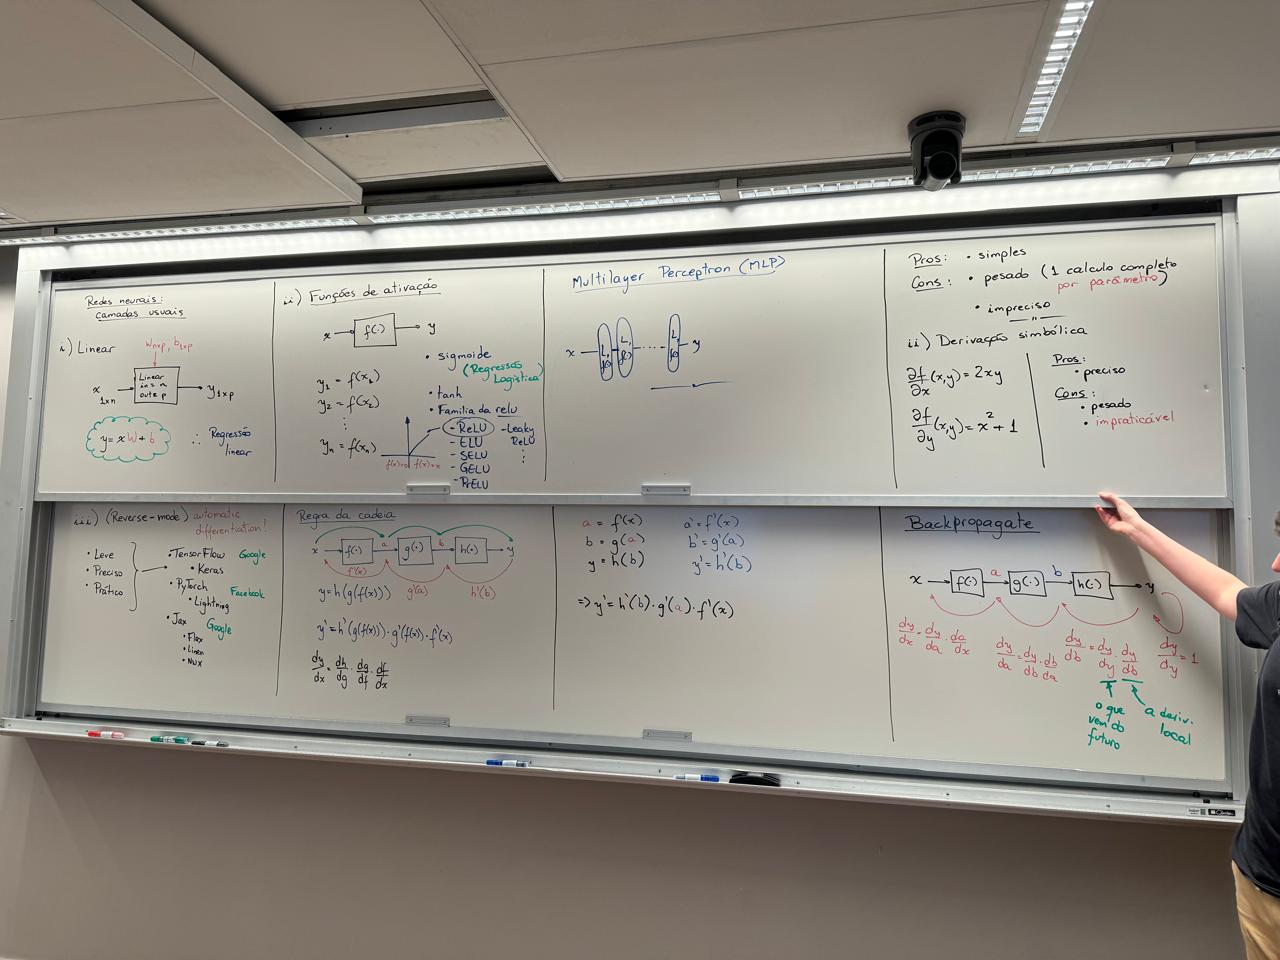 Redes neurais:
camadas usuais
i) Linear
Wnxp, b1xp
Linear
in = n
out = p
x
1xn
y1xp
y = xW + b
∴ Regressão
linear
ii) Funções de ativação
x
f(·)
y
y1 = f(x1)
y2 = f(x2)
⋮
yn = f(xn)
• sigmoide
(Regressão
Logística)
• tanh
• Família da relu
- ReLU
- ELU
- SELU
- GELU
- PrELU
- Leaky
ReLU
⋮
f(x)=0 f(x)=x
Multilayer Perceptron (MLP)
x
L, f(·)
L, f(·)
.....
L, f(·)
y
Pros: • simples
Cons: • pesado (1 calculo completo
por parâmetro)
• impreciso
ii) Derivação simbólica
∂f/∂x (x,y) = 2xy
∂f/∂y (x,y) = x² + 1
Pros:
• preciso
Cons:
• pesado
• impraticável
iii) (Reverse-mode) automatic
differentiation!
• Leve
• Preciso
• Prático
• TensorFlow Google
• Keras
• PyTorch Facebook
• Lightning
• Jax Google
• Flax
• Linen
• NNX
Regra da cadeia
x
f(·)
a
g(·)
b
h(·)
y
f'(x)
g'(a)
h'(b)
y = h(g(f(x)))
y' = h'(g(f(x)))·g'(f(x))·f'(x)
dy/dx = dh/dg · dg/df · df/dx
a = f(x)
b = g(a)
y = h(b)
a' = f'(x)
b' = g'(a)
y' = h'(b)
=> y' = h'(b)·g'(a)·f'(x)
Backpropagate
x
f(·)
a
g(·)
b
h(·)
y
dy/dx = dy/da · da/dx
dy/da = dy/db · db/da
dy/db = dy/dy · dy/db
dy/dy = 1
o que
vem do
futuro
a deriv.
local